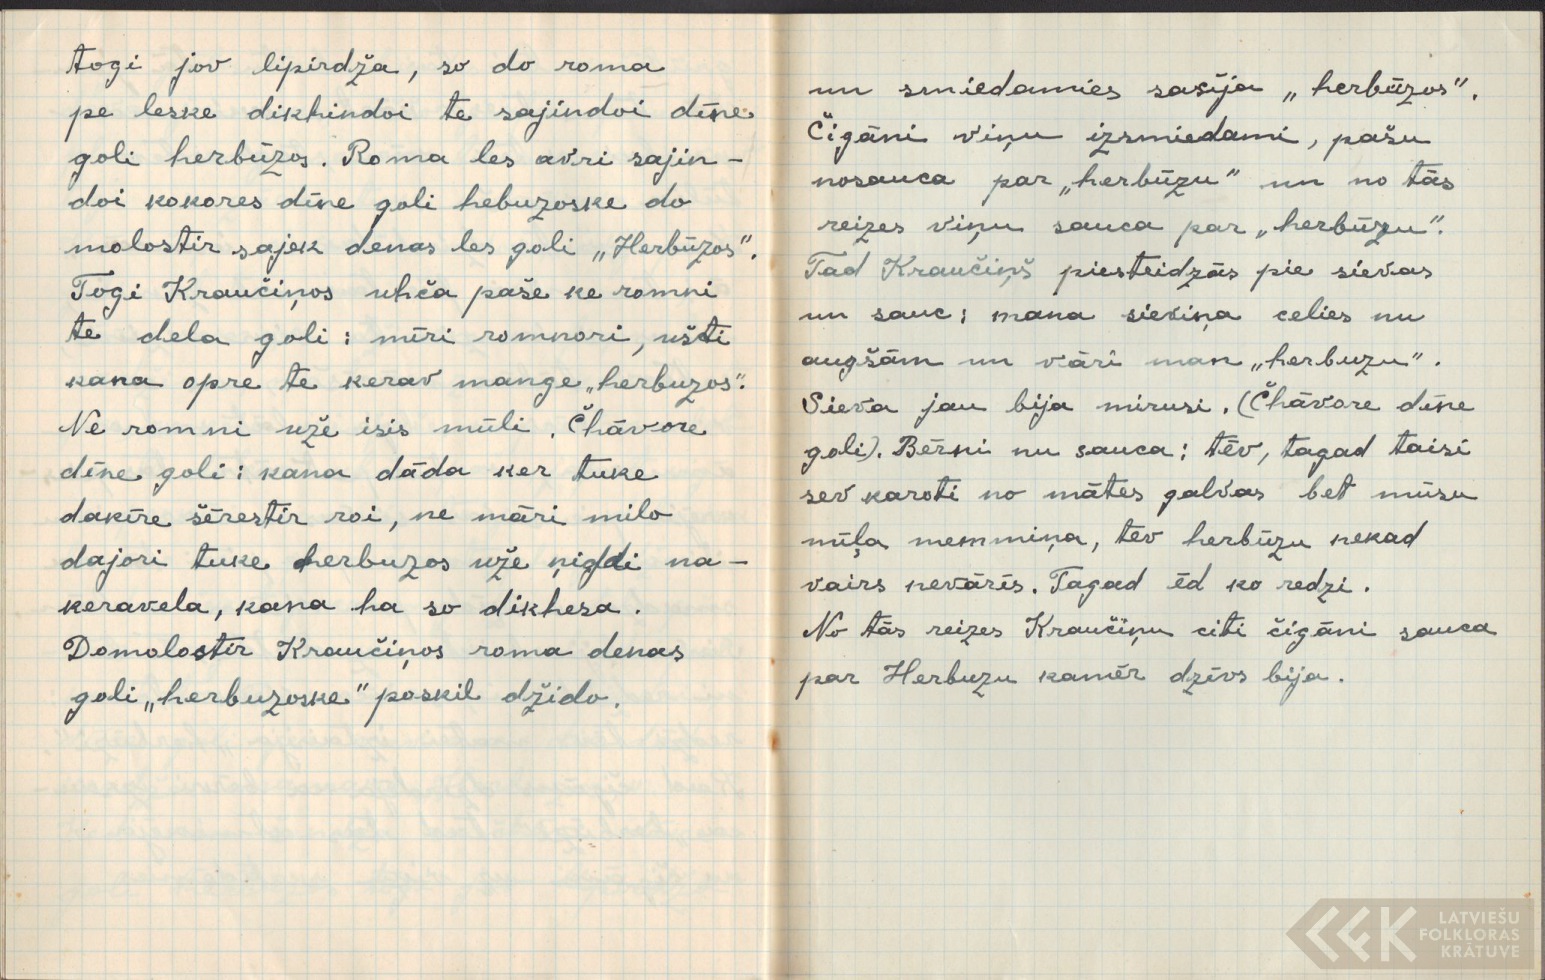 togi jov lipirdža, so do roma
pe leske dikhindoi te sajindoi dīne
goli herbūzos. Roma les avri sajin-
doi kokores dīne goli hebuzoske do
molostir sajek denas les goli „Herbūzos".
Togi Kraučiņos uhča paše ke romni
te dela goli: mīri romnori, ušti
kana opre te kerav mange „herbuzos".
Ne romni uže isis mūli. Čhāvore
dīne goli: kana dāda ker tuke
dakīre šērestir roi, ne māri milo
dajori tuke herbuzos uže ņigdi na-
keravela, kana ha so dikhesa.
Domolostir Kraučiņos roma denas
goli „herbuzoske" poskil džido.
un smiedamies sasīja „herbūzos".
Čigāni viņu izsmiedami, pašu
nosauca par „herbūzu" un no tās
reizes viņu sauca par „herbūzu".
Tad Kraučiņš piesteidzās pie sievas
un sauc: mana sieviņa celies nu
augšām un vāri man „herbuzu".
Sieva jau bija mirusi. (Čhāvore dīne
goli). Bērni nu sauca: tēv, tagad taisi
sev karoti no mātes galvas bet mūsu
mīļa memmiņa, tev herbūzu nekad
vairs nevārīs. Tagad ēd ko redzi.
No tās reizes Kraučiņu citi čigāni sauca
par Herbuzu kamēr dzīvs bija.
LATVIEŠU
FOLKLORAS
KRĀTUVE